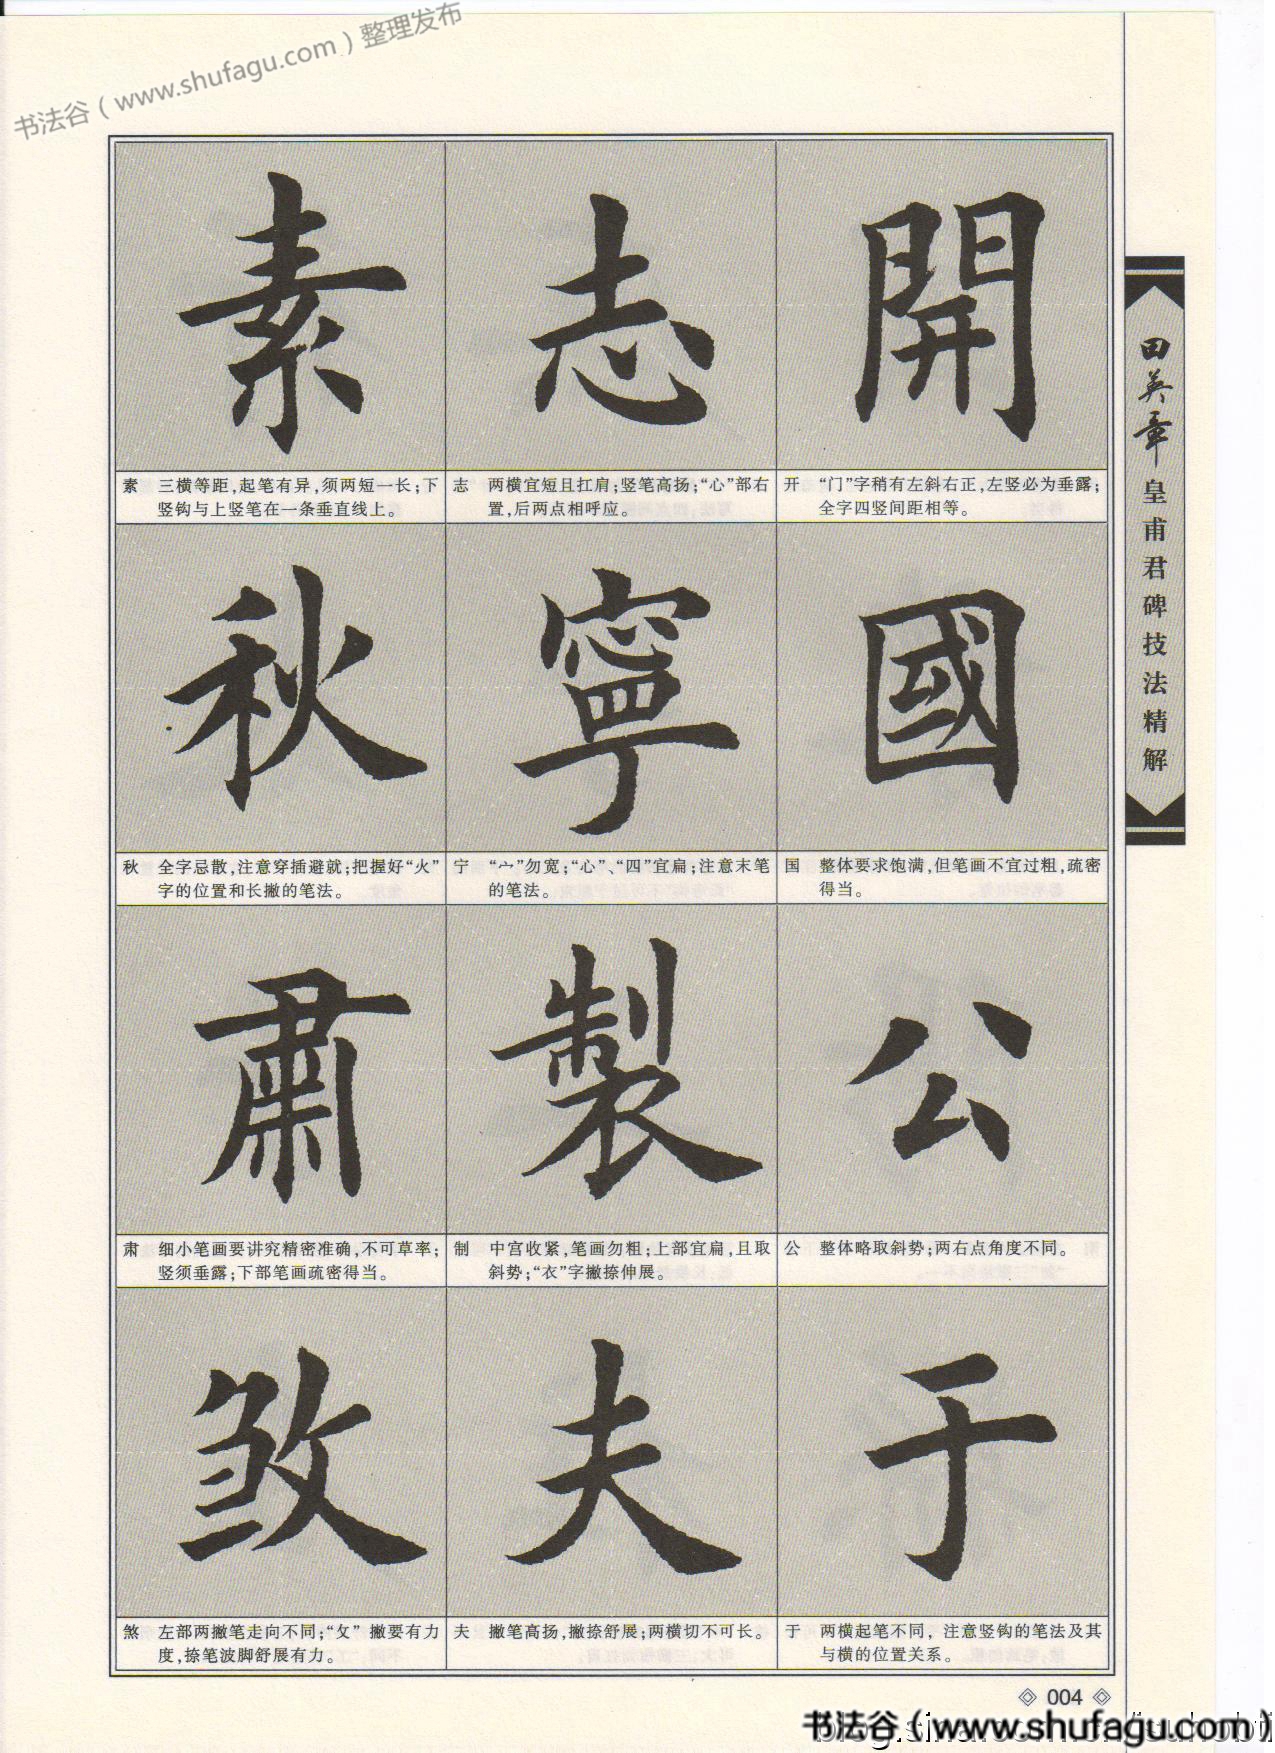 书法谷（www.shufagu.com）整理发布
開
志
素
开 “门”字稍有左斜右正，左竖必为垂露；
全字四竖间距相等。
志 两横宜短且扛肩；竖笔高扬；“心”部右
置，后两点相呼应。
素 三横等距，起笔有异，须两短一长；下
竖钩与上竖笔在一条垂直线上。
國
寧
秋
国 整体要求饱满，但笔画不宜过粗，疏密
得当。
宁 “宀”勿宽；“心”、“四”宜扁；注意末笔
的笔法。
秋 全字忌散，注意穿插避就；把握好“火”
字的位置和长撇的笔法。
公
製
肅
公 整体略取斜势；两右点角度不同。
制 中宫收紧，笔画勿粗；上部宜扁，且取
斜势；“衣”字撇捺伸展。
肃 细小笔画要讲究精密准确，不可草率；
竖须垂露；下部笔画疏密得当。
于
夫
煞
于 两横起笔不同，注意竖钩的笔法及其
与横的位置关系。
夫 撇笔高扬，撇捺舒展；两横切不可长。
煞 左部两撇笔走向不同；“攵”撇要有力
度，捺笔波脚舒展有力。
田英章
皇甫君碑技法精解
004
书法谷（www.shufagu.com）